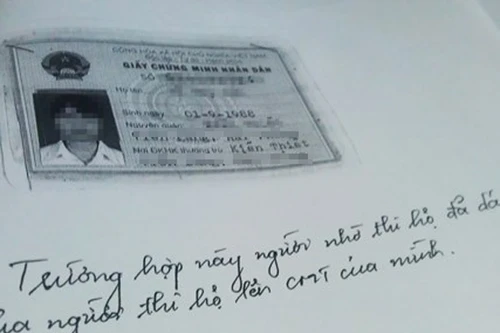 CỘNG HÒA XÃ HỘI CHỦ NGHĨA VIỆT NAM
GIẤY CHỨNG MINH NHÂN DÂN
SỐ
Họ tên
Sinh ngày 01-9-1988
Nguyên quán
Nơi ĐKHK thường trú Kiến Thiết
Trường hợp này người nhờ thi hộ đã dá
của người thi hộ lên CMT của mình.